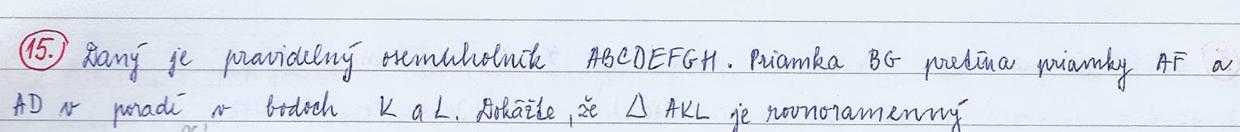 15. Daný je pravidelný osemuholník ABCDEFGH. Priamka BG pretína priamky AF a
AD v poradí v bodoch K a L. Dokážte, že △ AKL je rovnoramenný